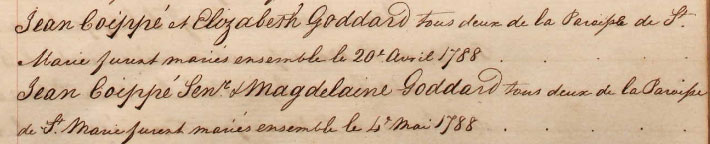 Jean Coippé et Elizabeth Goddard tous deux de la Paroisse de St.
Marie furent mariés ensemble le 20e Avril 1788
Jean Coippé Senr. & Magdelaine Goddard tous deux de la Paroisse
de St. Marie furent mariés ensemble le 4e Mai 1788